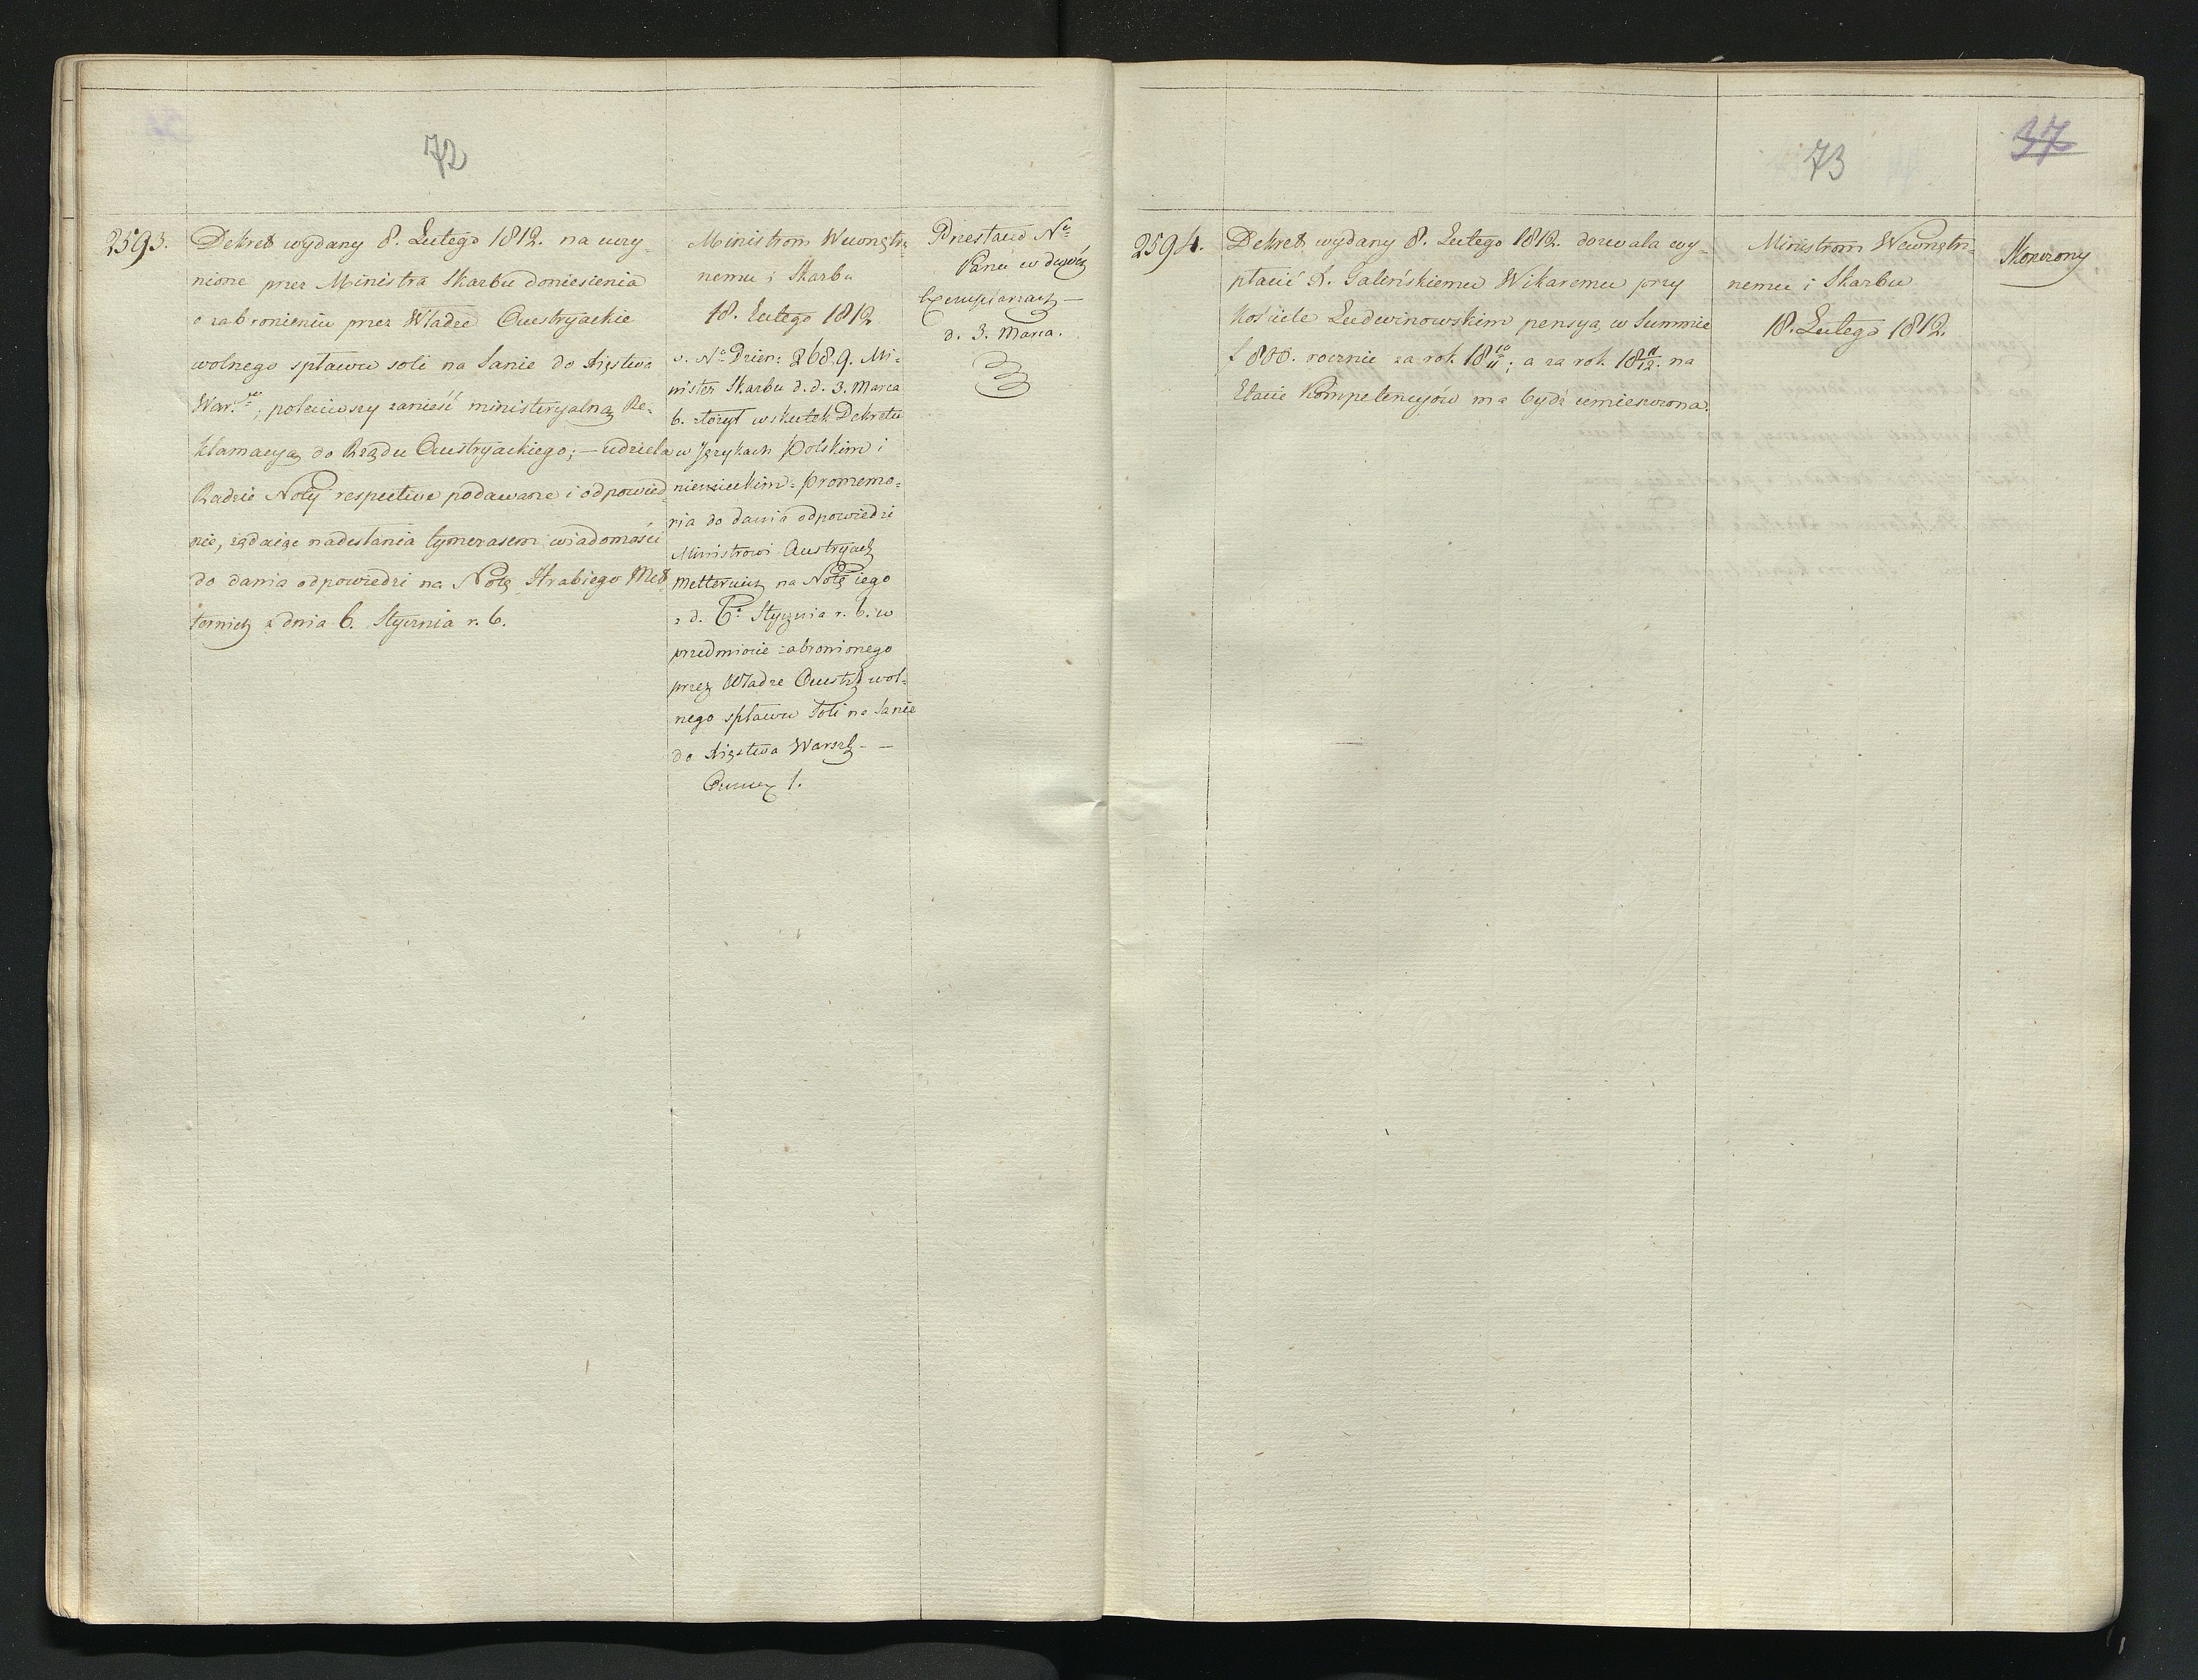 72
2593.
Dekret wydany 8. Lutego 1812. na uczy-
nione przez Ministra Skarbu doniesienia
o zabronieniu przez Władze Austryackie
wolnego spławu soli na Sanie do Xięstwa
War.go; poleciwszy zanieść ministeryalną Re-
klamacyą do Rządu Austryackiego; — udziela
Radzie Noty respective podawane i odpowied-
nie, żądaiąc nadesłania tymczasem wiadomości
do dania odpowiedzi na Notę Hrabiego Met
ternich z dnia 6. Stycznia r. b.
Ministrom Wewnętrz
nemu i Skarbu
18. Lutego 1812
v. No Dzien: 2689. Mi-
nister Skarbu d. d. 3. Marca
b. złożył w skutek Dekretu
w Językach polskim i
niemieckim: promemo-
ria do dania odpowiedzi
Ministrowi Austryach
Metternich na Notę iego
z d. 6o Stycznia r. b. w
przedmiocie zabronionego
przez Władze Austr wol-
nego spławu soli na Sanie
do Xięstwa Warsz —
Annex 1.
Przesłano No
Panu w dwóch
Exemplarzach —
d. 3. Marca.
73
37
2594.
Dekret wydany 8. Lutego 1812. dozwala wy-
płacić X. Galeńskiemu Wikaremu przy
Kościele Ludwinowskim pensyą w Summie
f 800. rocznie za rok 18 10/11; a za rok 18 11/12. na
Etacie Kompetencyów ma bydź umieszczona.
Ministrom Wewnętrz-
nemu i Skarbu
18. Lutego 1812.
Skończony